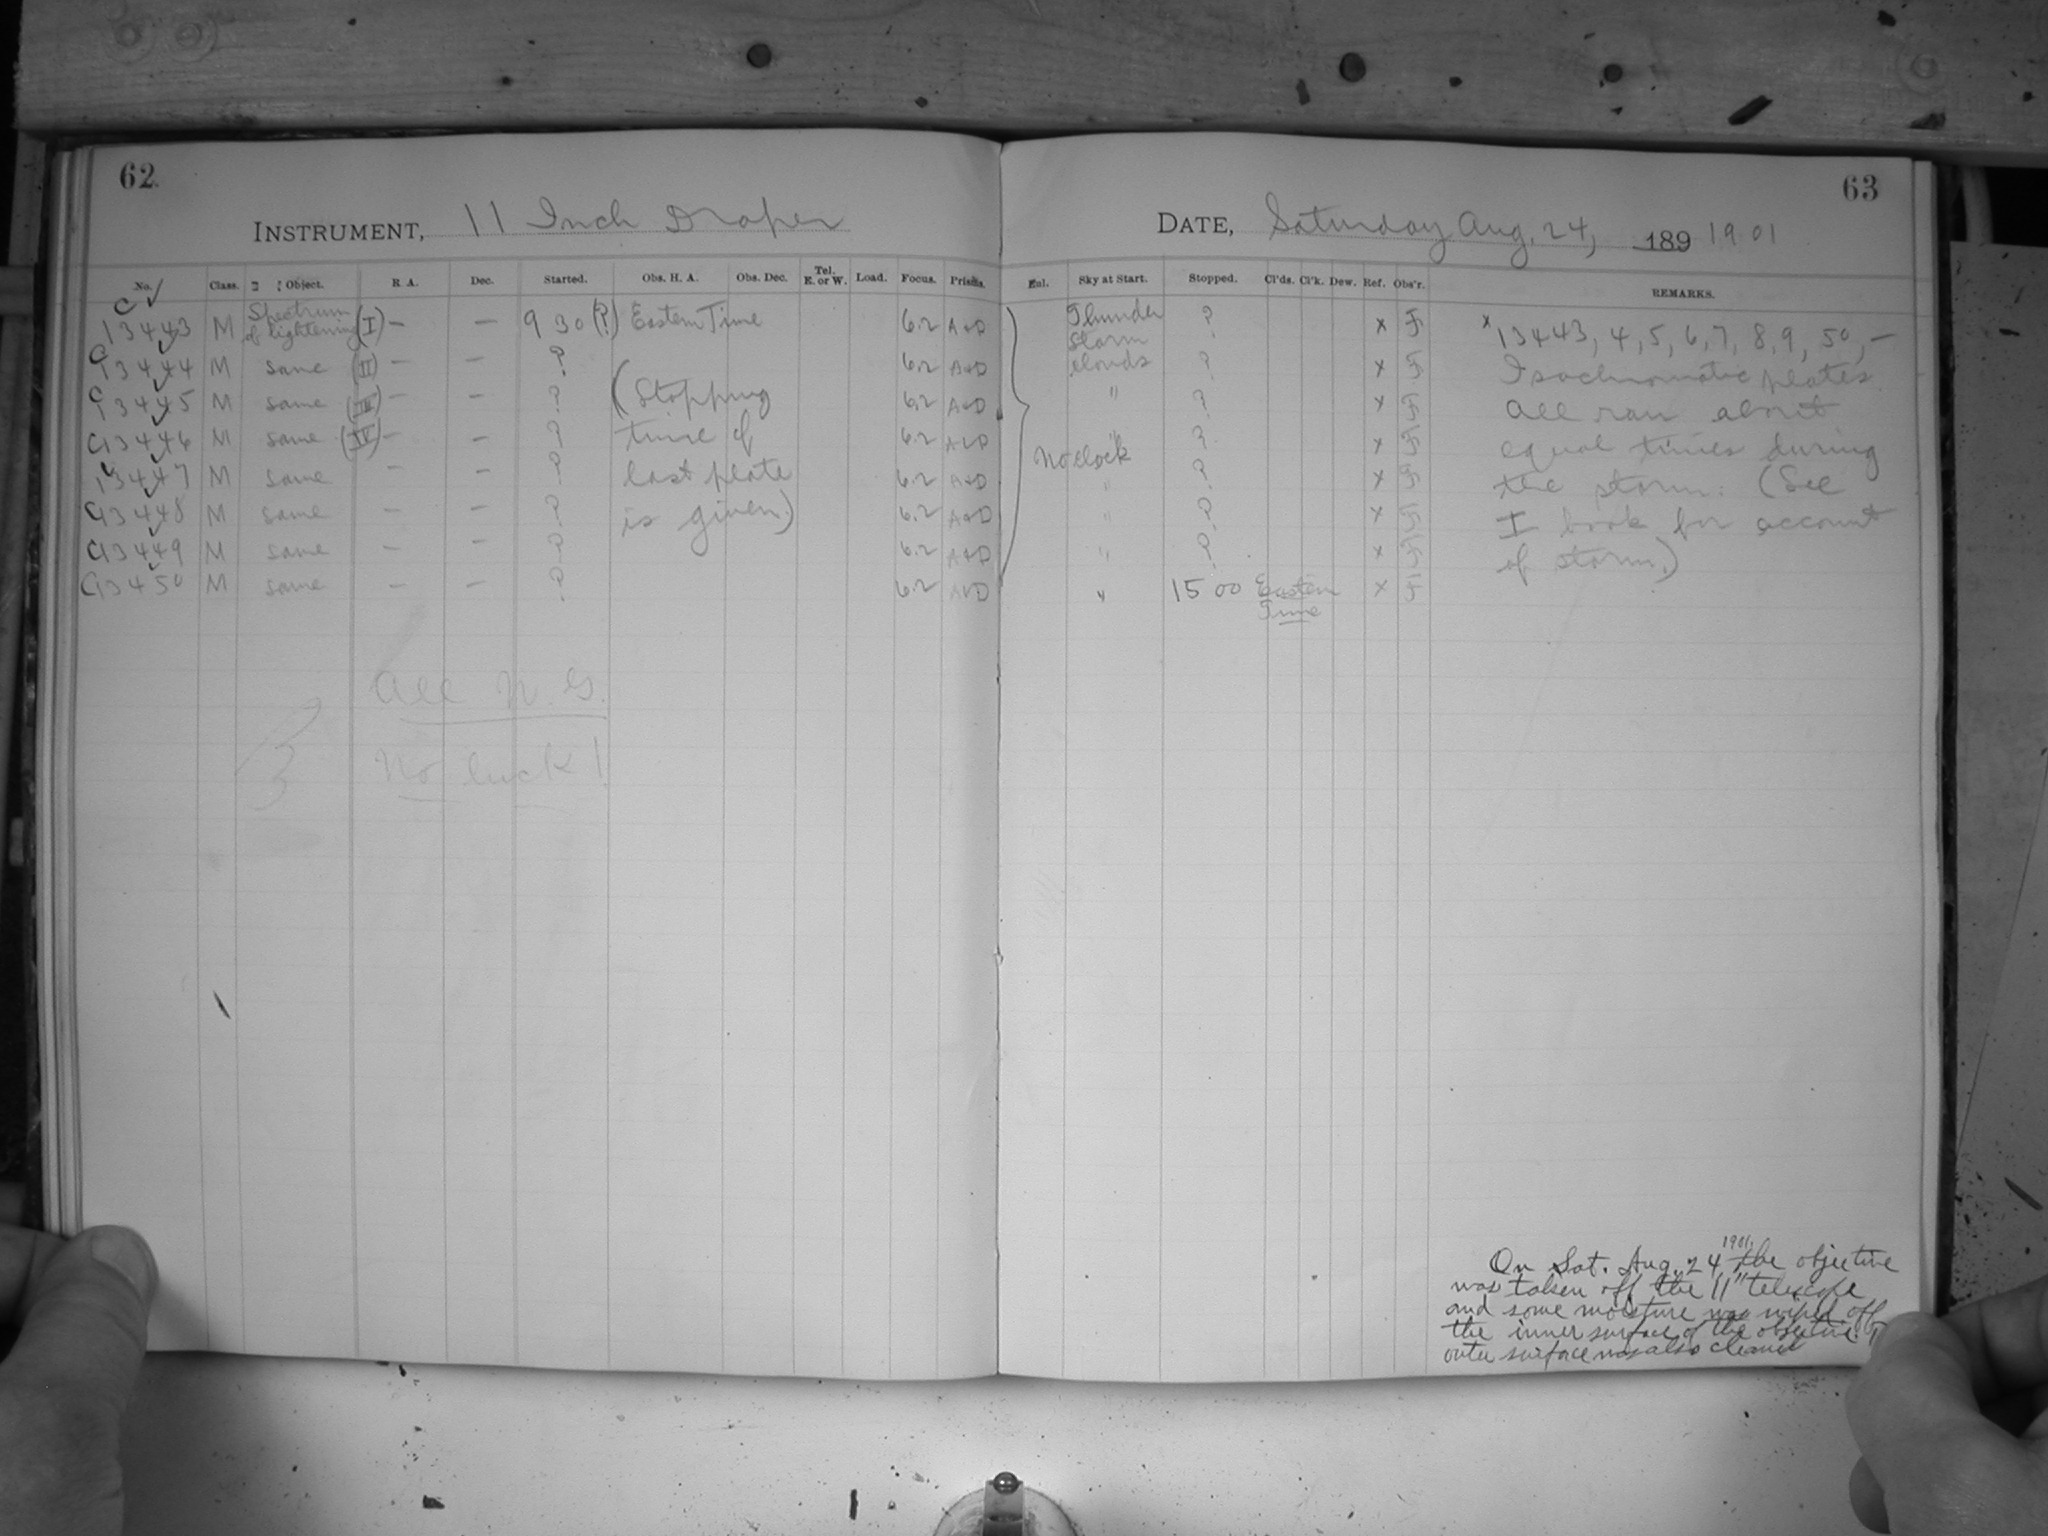 62
INSTRUMENT, 11 Inch Draper
No. Class. Object. R. A. Dec. Started. Obs. H. A. Obs. Dec. Tel. E. or W. Load. Focus. Prisms.
C 13443 M Spectrum of lightening (I) – – 9 30 (?) Eastern Time 6.2 A+D
C 13444 M same (II) – – ? 6.2 A+D
C 13445 M same (III) – – ? (Stopping 6.2 A+D
C 13446 M same (IV) – – ? time of 6.2 A+D
13447 M same – – ? last plate 6.2 A+D
C 13448 M same – – ? is given) 6.2 A+D
C 13449 M same – – ? 6.2 A+D
C 13450 M same – – ? 6.2 A+D
All N. G.
No luck!
63
DATE, Saturday Aug. 24, 189 1901
Enl. Sky at Start. Stopped. Cl'ds. Cl'k. Dew. Ref. Obs'r. REMARKS.
Thunder ? x F x 13443, 4, 5, 6, 7, 8, 9, 50, –
Storm
clouds ? x F Isochromatic plates
" ? x F All ran about
" ? x F equal times during
No clock " ? x F the storm. (See
" ? x F I book for account
" ? x F of storm.)
" 15 00 Eastern x F
Time
On Sat. Aug. 24, 1901, the objective
was taken off the 11" telescope
and some moisture was wiped off
the inner surface of the objective.
outer surface was also cleaned